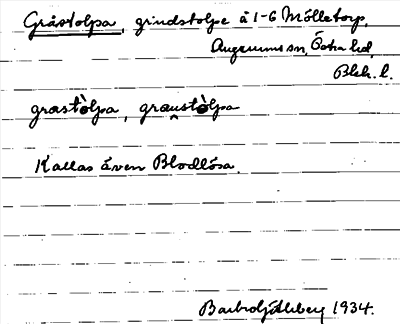 Gråstolpa, grindstolpe å 1-6 Mölletorp,
Augerums sn, Östra hd,
Blek. l.
grastòlpa, graustòlpa
Kallas även Blodlösa.
1934.